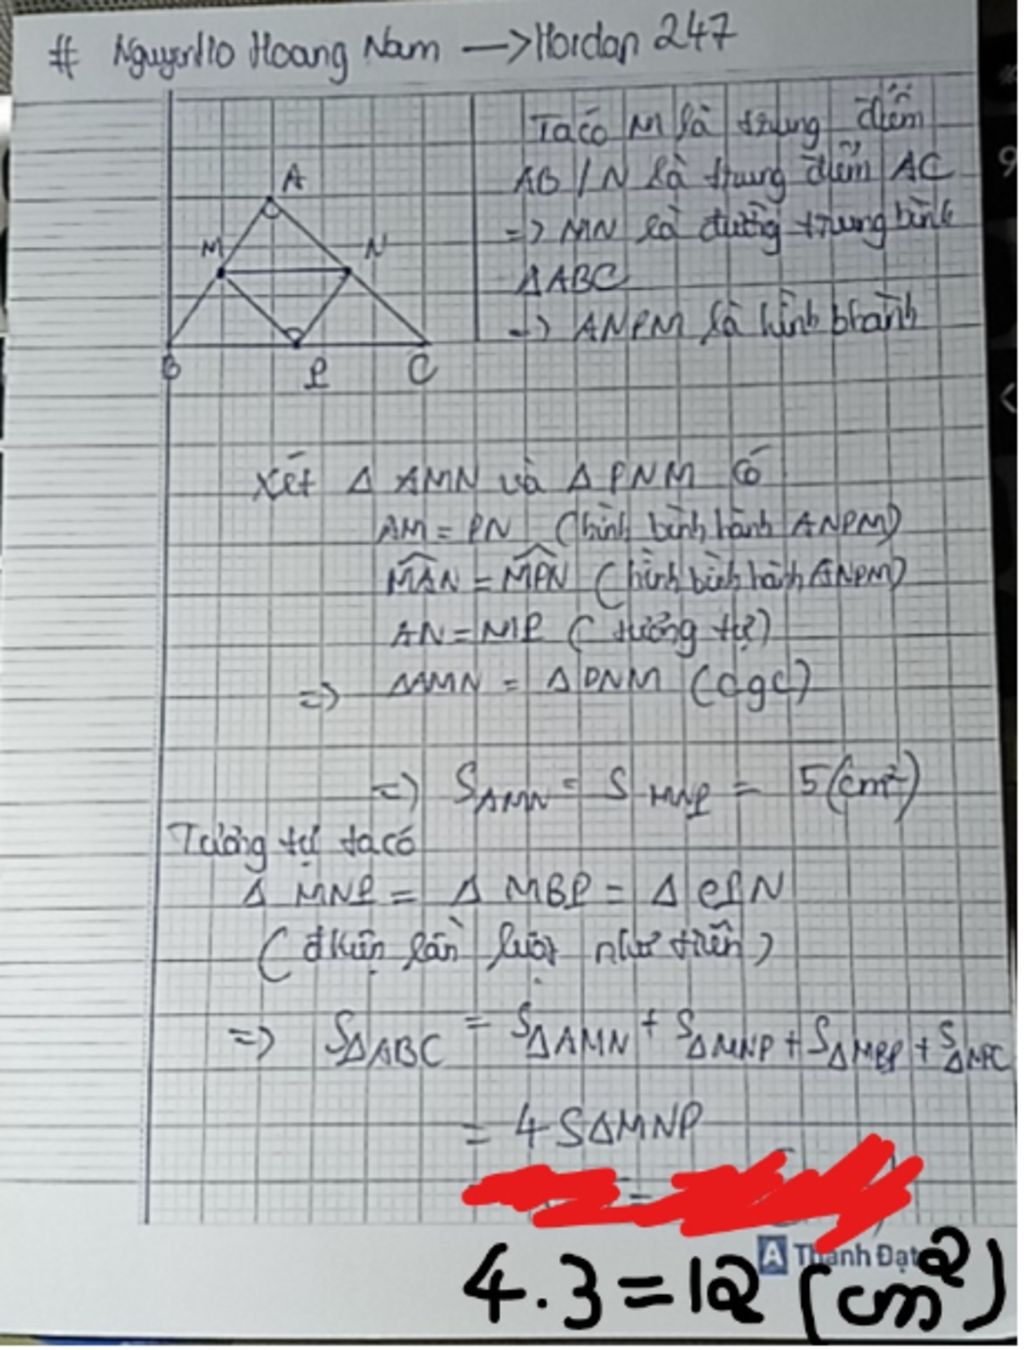 # Nguyenlo Hoang Nam → Hordap 247
A
M N
B P C
Ta có M là trung điểm
AB / N là trung điểm AC
=> MN là đường trung bình
ΔABC
=> ANPM là hình bhành
Xét Δ AMN và Δ PNM có
AM = PN (hình bình hành ANPM)
MAN = MPN (hình bình hành ANPM)
AN = MP (tương tự)
=> ΔAMN = ΔPNM (cgc)
=> SAMN = SMNP = 5(cm²)
Tương tự ta có
Δ MNP = Δ MBP = Δ CPN
(đkiện lần lượt như trên)
=> SΔABC = SΔAMN + SΔMNP + SΔMBP + SΔNPC
= 4SΔMNP
A Thành Đạt
4.3=12 (cm²)